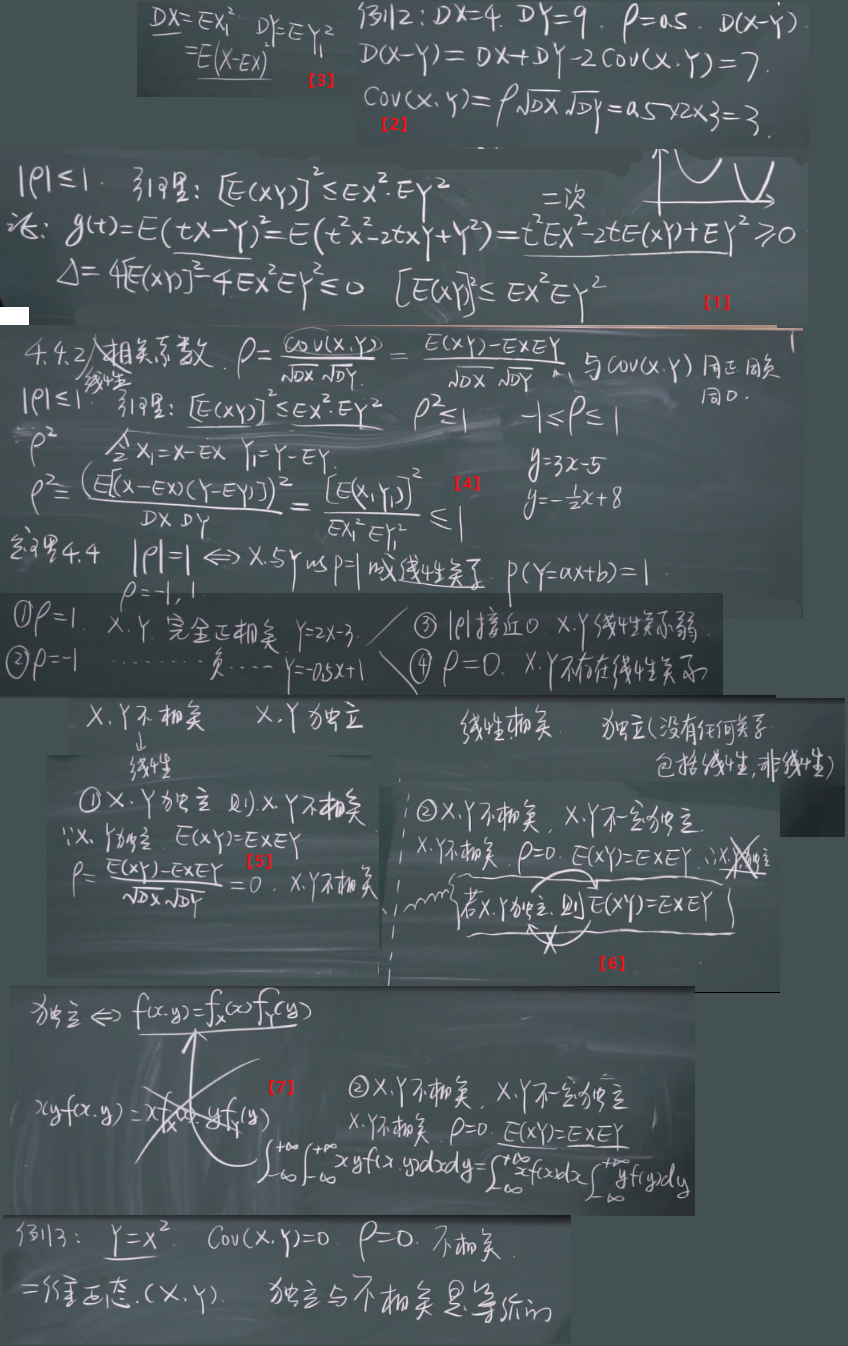 DX=EX₁² DY=EY₁²
=E(X-EX)²
【3】
例12: DX=4. DY=9. ρ=0.5. D(X-Y).
D(X-Y)=DX+DY-2Cov(X.Y)=7.
Cov(X.Y)=ρ√DX√DY=0.5×2×3=3.
【2】
|ρ|≤1. 引理: [E(XY)]²≤EX²·EY² 二次
证: g(t)=E(tX-Y)²=E(t²X²-2tXY+Y²)=t²EX²-2tE(XY)+EY²≥0
Δ=4[E(XY)]²-4EX²EY²≤0 [E(XY)]²≤EX²EY²
【1】
4.4.2 相关系数. ρ=Cov(X.Y)/√DX√DY=E(XY)-EXEY/√DX√DY, 与Cov(X.Y)同正同负
线性
同0.
|ρ|≤1 引理: [E(XY)]²≤EX²·EY² ρ²≤1 -1≤ρ≤1
ρ² 令X₁=X-EX Y₁=Y-EY.
y=3x-5
y=-½x+8
ρ²=(E[(X-EX)(Y-EY)])²/DX DY=[E(X₁Y₁)]²/EX₁²EY₁²≤1
【4】
定理4.4 |ρ|=1⇔X.与Y以P=1成线性关系. P(Y=ax+b)=1.
ρ=-1,1.
①ρ=1. X.Y.完全正相关. Y=2X-3. ③|ρ|接近0. X.Y线性关系弱.
②ρ=-1 ........ 负..... Y=-0.5X+1 ④ρ=0. X.Y不存在线性关系
X.Y不相关 X.Y独立 线性相关. 独立(没有任何关系
↓
线性 包括线性,非线性)
①X.Y独立则.X.Y不相关
∵X.Y独立. E(XY)=EXEY
【5】
ρ=E(XY)-EXEY/√DX√DY=0. X.Y不相关
②X.Y不相关, X.Y不一定独立.
X.Y不相关. ρ=0. E(XY)=EXEY. ∵X.Y独立
若X.Y独立.则E(XY)=EXEY
【6】
独立⇔f(x.y)=fX(x)fY(y)
【7】
xyf(x.y)=xfX(x).yfY(y)
②X.Y不相关, X.Y不一定独立
X.Y不相关. ρ=0. E(XY)=EXEY
∫₋∞⁺∞∫₋∞⁺∞xyf(x.y)dxdy=∫₋∞⁺∞xf(x)dx∫₋∞⁺∞yf(y)dy
例13: Y=X². Cov(X.Y)=0. ρ=0. 不相关.
二维正态.(X.Y). 独立与不相关是等价的